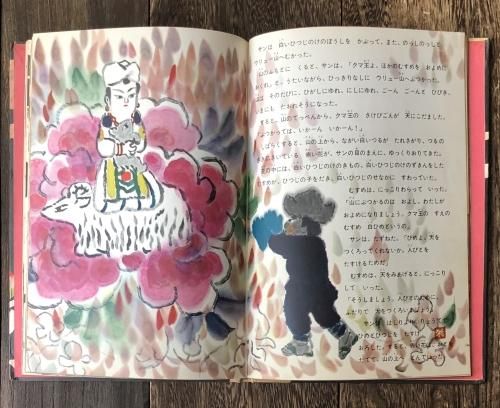 サンは 白いひつじのけのぼうしを かぶって、また、のっしのっしと
クリュー山へむかった。
山のふもとに くると、サンは、「クマ王よ、ほかのむすめを およめに
おくれ」と、うたいながら、ひっきりなしに クリュー山へぶつかった。
山は そのたびに、ひがしにゆれ、にしにゆれ、ごーん ごーんと ひびき、
いまにも たおれそうになった。
すると、山のてっぺんから、クマ王の さけびごえが 天にこだました。
「ぶつかっては、いかーん いかーん！」
しばらくすると、山の上から、ながい白いつるが たれさがり、つるの
さきにさいている 赤い花が、サンの目のまえに、ゆっくりおりてきた。
花の中には、白いひつじのけのきもの、白いひつじのけのずきんをした
むすめが、ひつじの子をだき、白いひつじのせなかに すわっていた。
むすめは、にっこりわらって いった。
「山にぶつかるのは およし。わたしが
およめになりましょう。クマ王の すえの
むすめ 白ひめというの」
サンは、たずねた。「ひめよ、天を
つくろってくれないか。人びとを
たすけるためだ」
むすめは、天をみあげると、にっこり
して いった。
「そうしましょう。人びとのために、
ふたりで 天をつくろいましょう」
サンは
ひめとひつじを
おろした。すると、
山の上へ